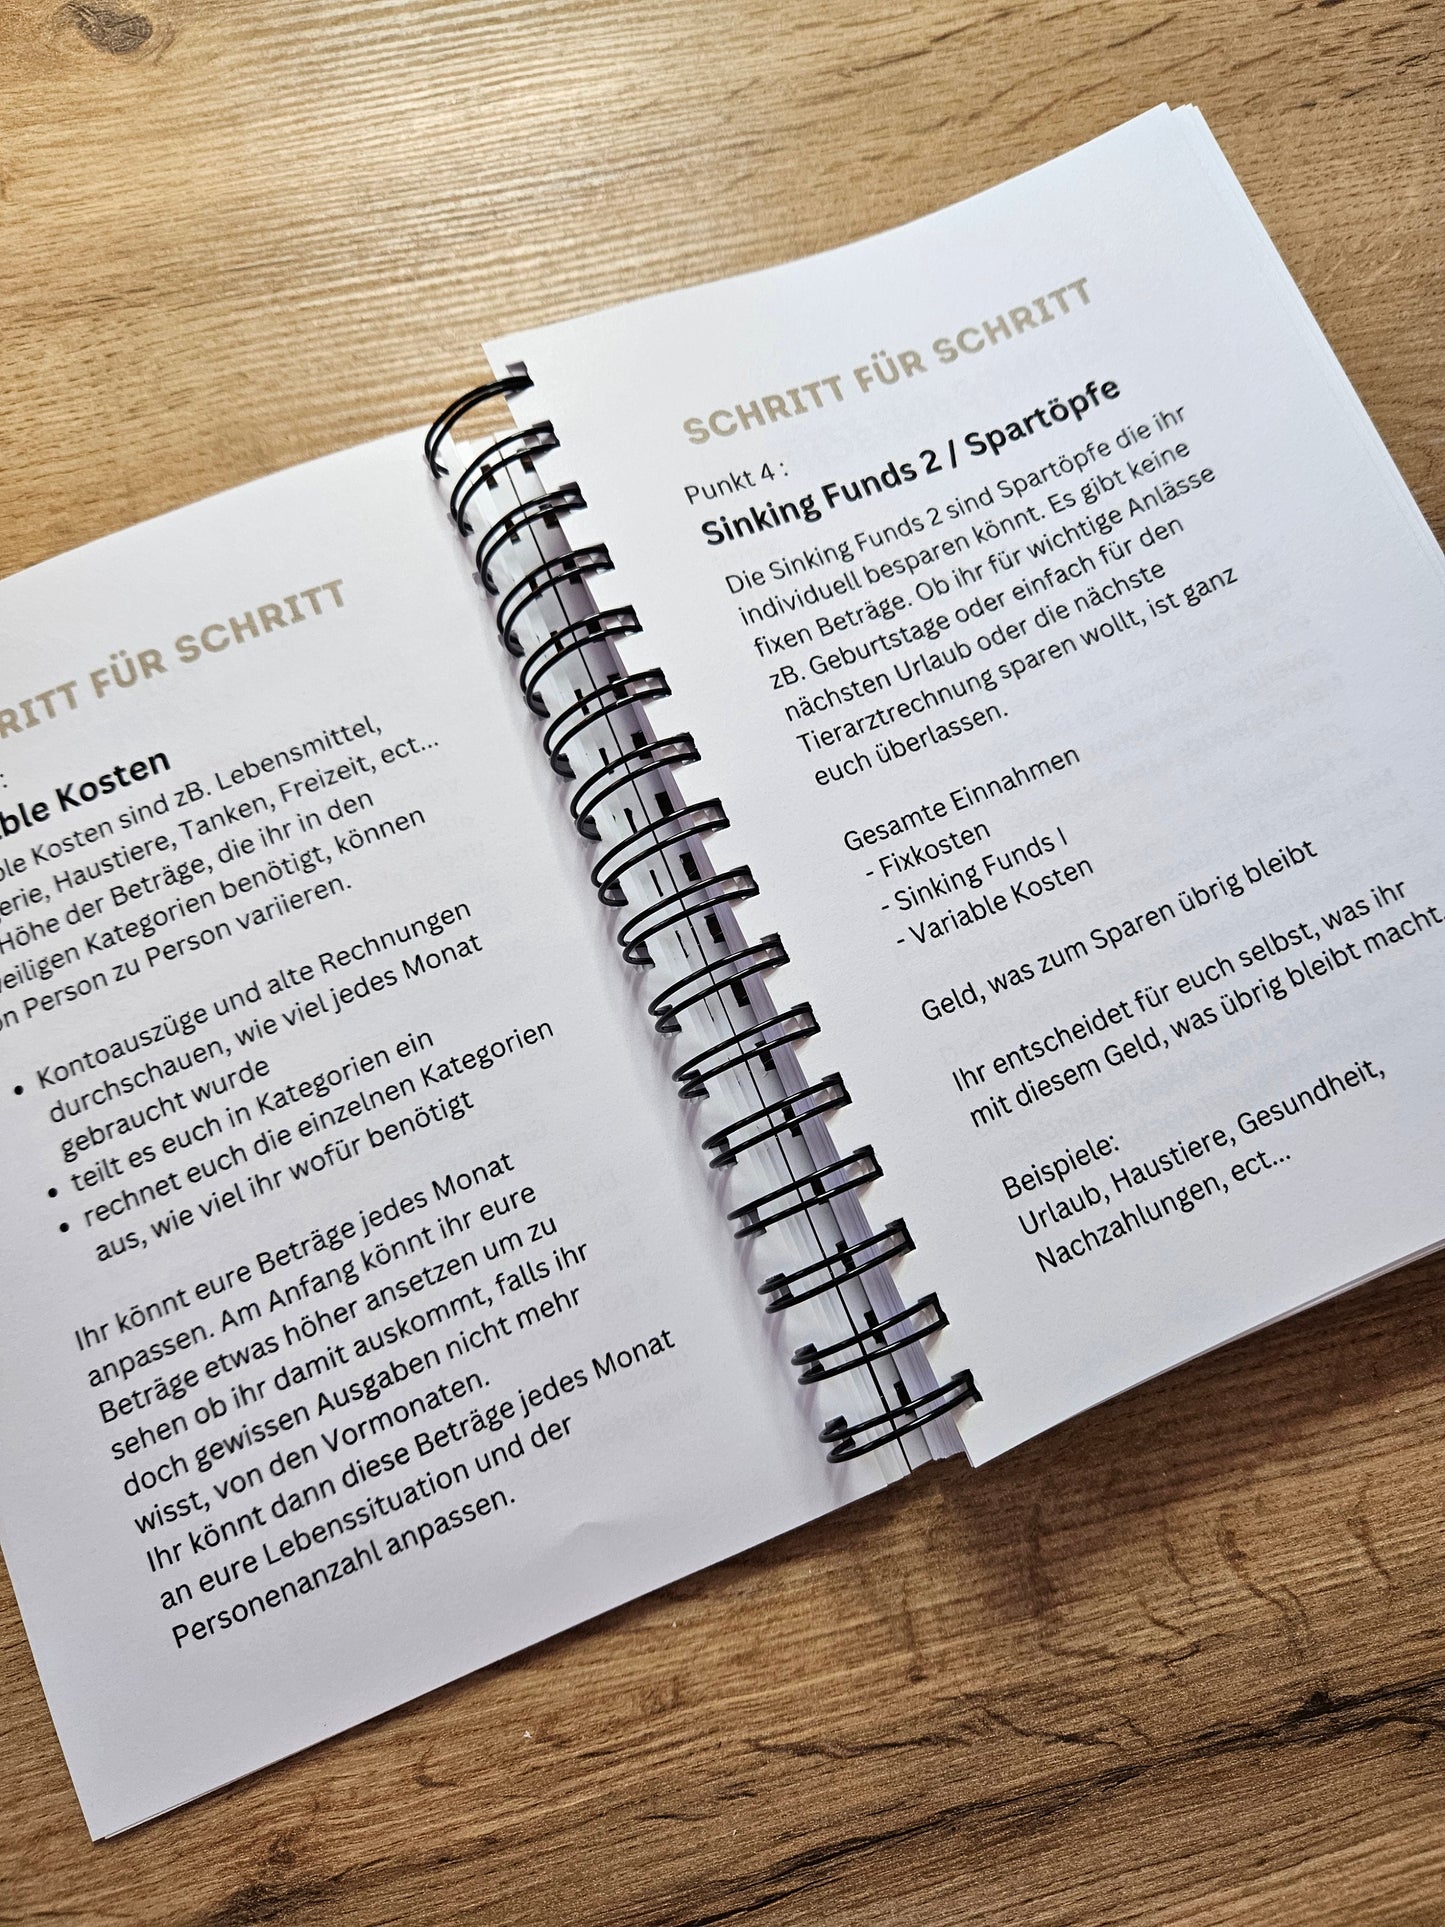 FÜR SCHRITT
:
Kosten
Kosten sind zB. Lebensmittel,
Haustiere, Tanken, Freizeit, ect...
Höhe der Beträge, die ihr in den
Kategorien benötigt, können
Person zu Person variieren.
• Kontoauszüge und alte Rechnungen
durchschauen, wie viel jedes Monat
gebraucht wurde
• teilt es euch in Kategorien ein
• rechnet euch die einzelnen Kategorien
aus, wie viel ihr wofür benötigt
Ihr könnt eure Beträge jedes Monat
anpassen. Am Anfang könnt ihr eure
Beträge etwas höher ansetzen um zu
sehen ob ihr damit auskommt, falls ihr
doch gewissen Ausgaben nicht mehr
wisst, von den Vormonaten.
Ihr könnt dann diese Beträge jedes Monat
an eure Lebenssituation und der
Personenanzahl anpassen.
SCHRITT FÜR SCHRITT
Punkt 4 :
Sinking Funds 2 / Spartöpfe
Die Sinking Funds 2 sind Spartöpfe die ihr
individuell besparen könnt. Es gibt keine
fixen Beträge. Ob ihr für wichtige Anlässe
zB. Geburtstage oder einfach für den
nächsten Urlaub oder die nächste
Tierarztrechnung sparen wollt, ist ganz
euch überlassen.
Gesamte Einnahmen
- Fixkosten
- Sinking Funds I
- Variable Kosten
Geld, was zum Sparen übrig bleibt
Ihr entscheidet für euch selbst, was ihr
mit diesem Geld, was übrig bleibt macht.
Beispiele:
Urlaub, Haustiere, Gesundheit,
Nachzahlungen, ect...